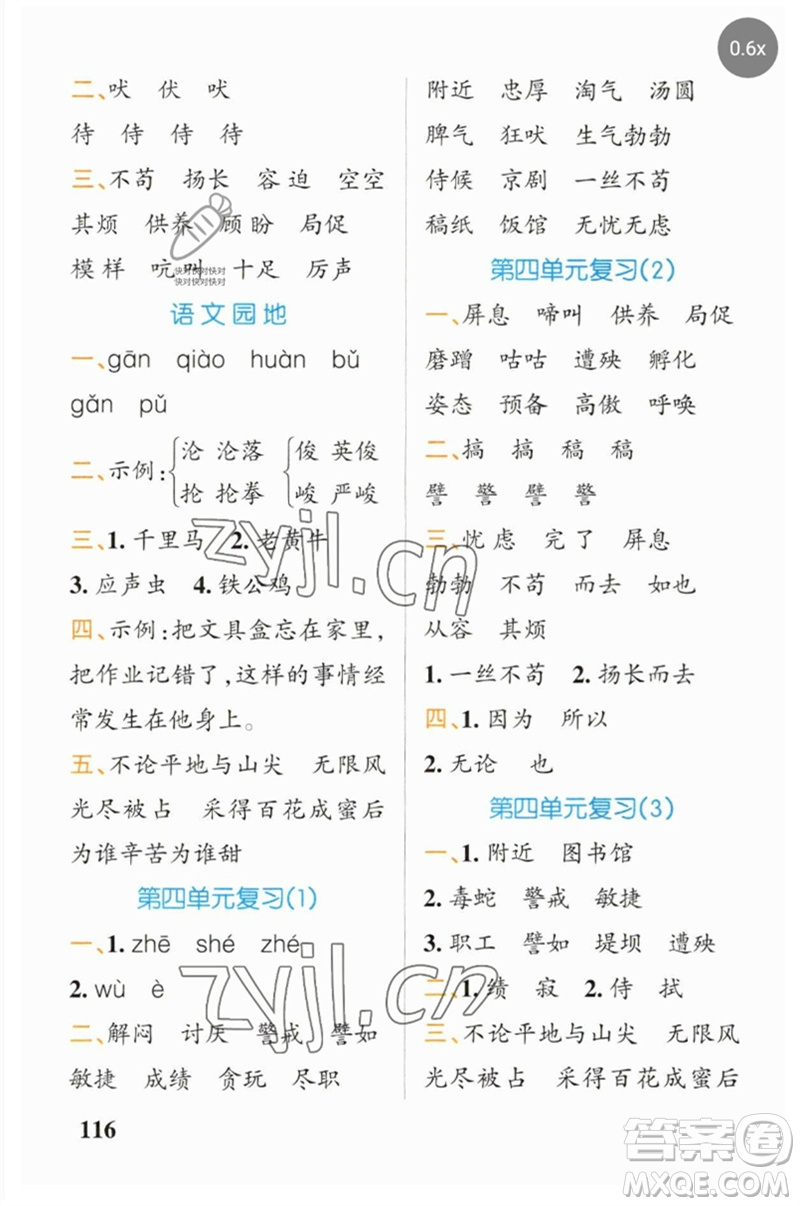 0.6x
二、吠 伏 吠
待 侍 侍 待
三、不苟 扬长 容迫 空空
其烦 供养 顾盼 局促
模样 吭叫 十足 厉声
快对快对快对快对
快对快对快对快对
语文园地
一、gān qiào huàn bǔ
gǎn pǔ
二、示例:沦 沦落 俊 英俊
抡 抡拳 峻 严峻
三、1.千里马 2.老黄牛
3.应声虫 4.铁公鸡
四、示例:把文具盒忘在家里,
把作业记错了,这样的事情经
常发生在他身上。
五、不论平地与山尖 无限风
光尽被占 采得百花成蜜后
为谁辛苦为谁甜
第四单元复习(1)
一、1.zhē shé zhé
2.wù è
二、解闷 讨厌 警戒 譬如
敏捷 成绩 贪玩 尽职
116
附近 忠厚 淘气 汤圆
脾气 狂吠 生气勃勃
侍候 京剧 一丝不苟
稿纸 饭馆 无忧无虑
第四单元复习(2)
一、屏息 啼叫 供养 局促
磨蹭 咕咕 遭殃 孵化
姿态 预备 高傲 呼唤
二、搞 搞 稿 稿
譬 警 譬 警
三、忧虑 完了 屏息
勃勃 不苟 而去 如在
从容 其烦
1.一丝不苟 2.扬长而去
四、1.因为 所以
2.无论 也
第四单元复习(3)
一、1.附近 图书馆
2.毒蛇 警戒 敏捷
3.职工 譬如 堤坝 遭殃
二、1.绩 寂 2.侍 拭
三、不论平地与山尖 无限风
光尽被占 采得百花成蜜后
zyjl.cn
zyjl.cn
答案圈
MXQE.COM